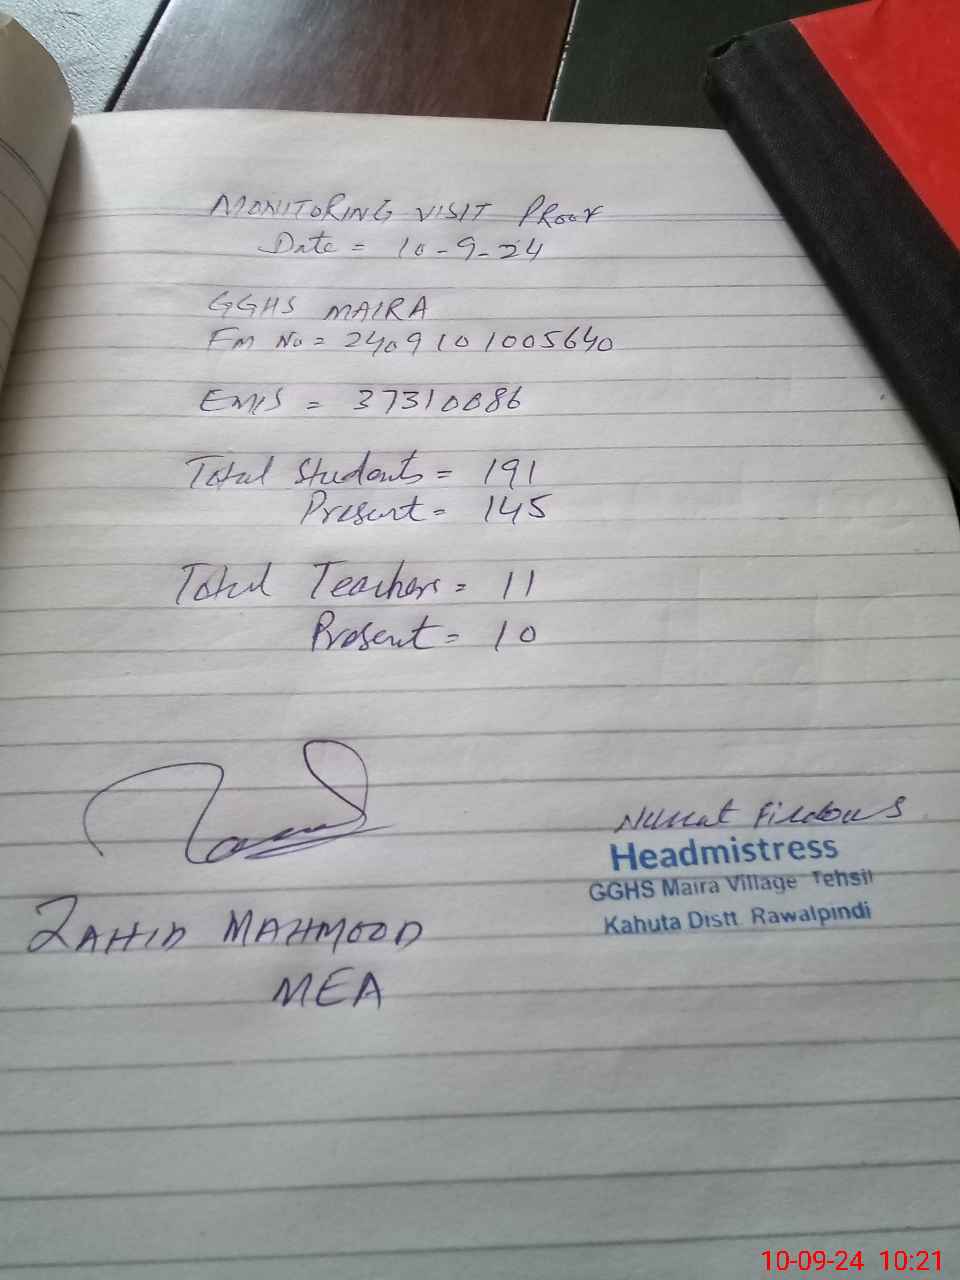 MONITORING VISIT PROOF
Date = 10-9-24
GGHS MAIRA
Fm No = 2409101005640
EMIS = 37310086
Total Students = 191
Present = 145
Total Teachers = 11
Present = 10
Nusrat Firdous
Headmistress
GGHS Maira Village Tehsil
Kahuta Distt. Rawalpindi
ZAHID MAHMOOD
MEA
10-09-24 10:21